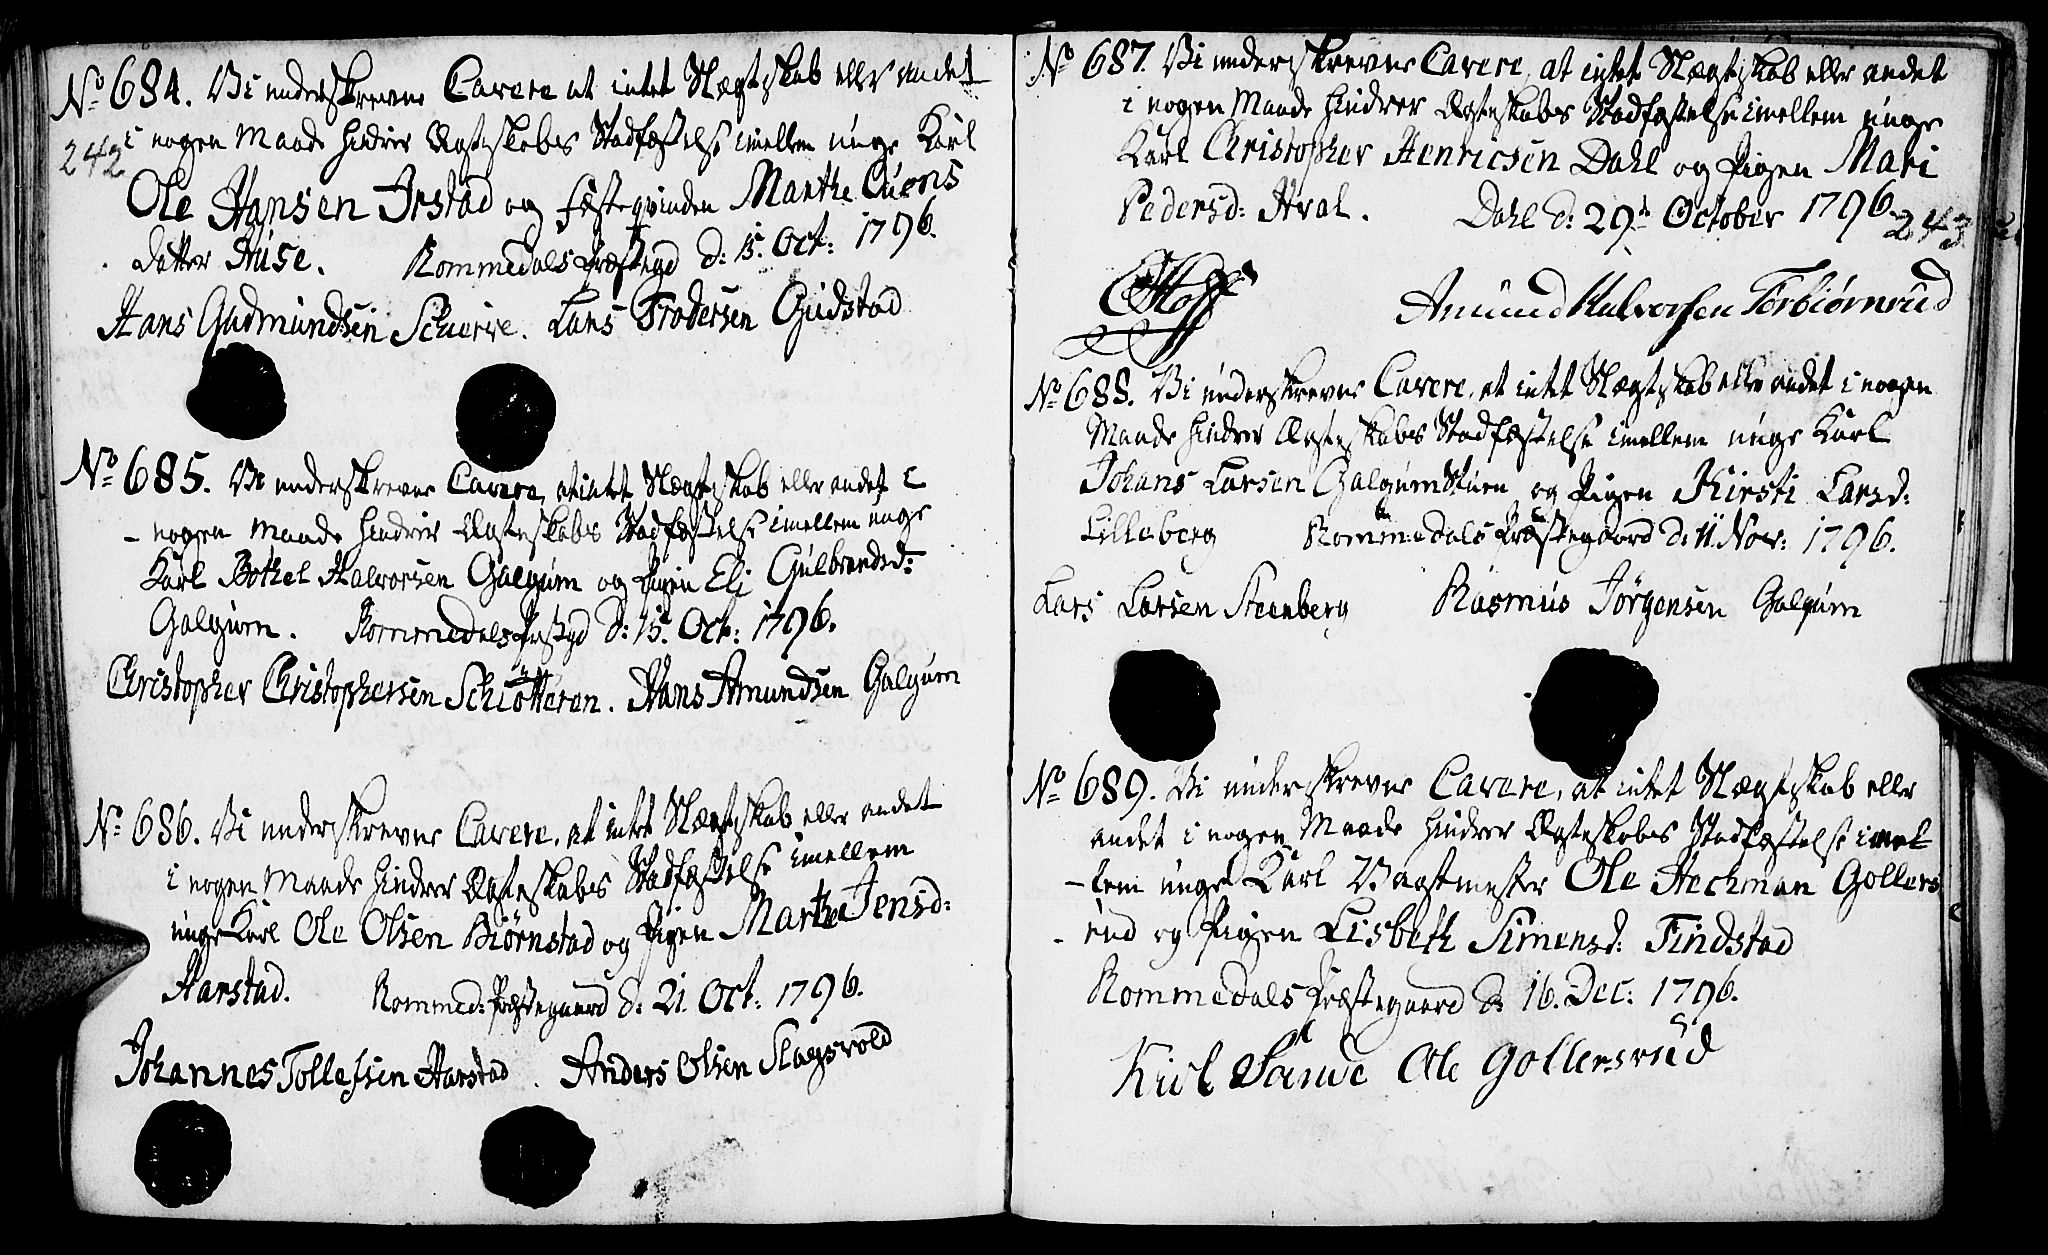 No 684. Vi underskrevne Cavere at intet Slægtskab eller andet
242
i nogen Maade hindrer Ægteskabs Stadfæstelse imellem unge Karl
Ole Hansen Irstad og Fæsteqvinden Marthe
datter Huse. Rommedals Præstegd d: 15. Oct: 1796.
Hans Gudmundsen Schierve. Lars Frodersen Gudstad
No 685. Vi underskrevne Cavere, at intet Slægtskab eller andet i
- nogen Maade hindrer Ægteskabs Stadfæstelse imellem unge
Karl Bottel Halvorsen Galgum og Pigen Eli Gulbrandsd:
Galgum. Rommedals Prstgd d: 15. Oct: 1796.
Christopher Christophersen Schiötteren. Hans Amundsen Galgum
No 686. Vi underskrevne Cavere, at intet Slægtskab eller andet
i nogen Maade hindrer Ægteskabs Stadfæstelse imellem
unge Karl Ole Olsen Biørnstad og Pigen Marthe Jensd:
Harstad. Rommed: Præstegaard d: 21. Oct: 1796.
Johannes Tollefsen Harstad. Anders Olsen Slagsvold
No 687. Vi underskrevne Cavere, at intet Slægtskab eller andet
i nogen Maade hindrer Ægteskabs Stadfæstelse imellem unge
Karl Christopher Henricsen Dahl og Pigen Mari
Pedersd: Hval. Dahl d: 29de October 1796.
243
Hoff Amund Halvorsen Torbiørnrud
No 688. Vi underskrevne Cavere, at intet Slægtskab eller andet i nogen
Maade hindrer Ægteskabs Stadfæstelse imellem unge Karl
Johans Larsen Galgumstuen og Pigen Kirsti Larsd:
Lilleberg Rommedals Præstegaard d: 11. Nov: 1796.
Lars Larsen Steenberg Rasmus Jørgensen Galgum
No 689. Vi underskrevne Cavere, at intet Slægtskab eller
andet i nogen Maade hindrer Ægteskabs Stadfæstelse imel
- lem unge Karl Vagtmester Ole Hechman Gollers
- rud og Pigen Lisbeth Simensd: Findstad
Rommedals Præstegaard d: 16. Dec: 1796.
Ole Gollersrud